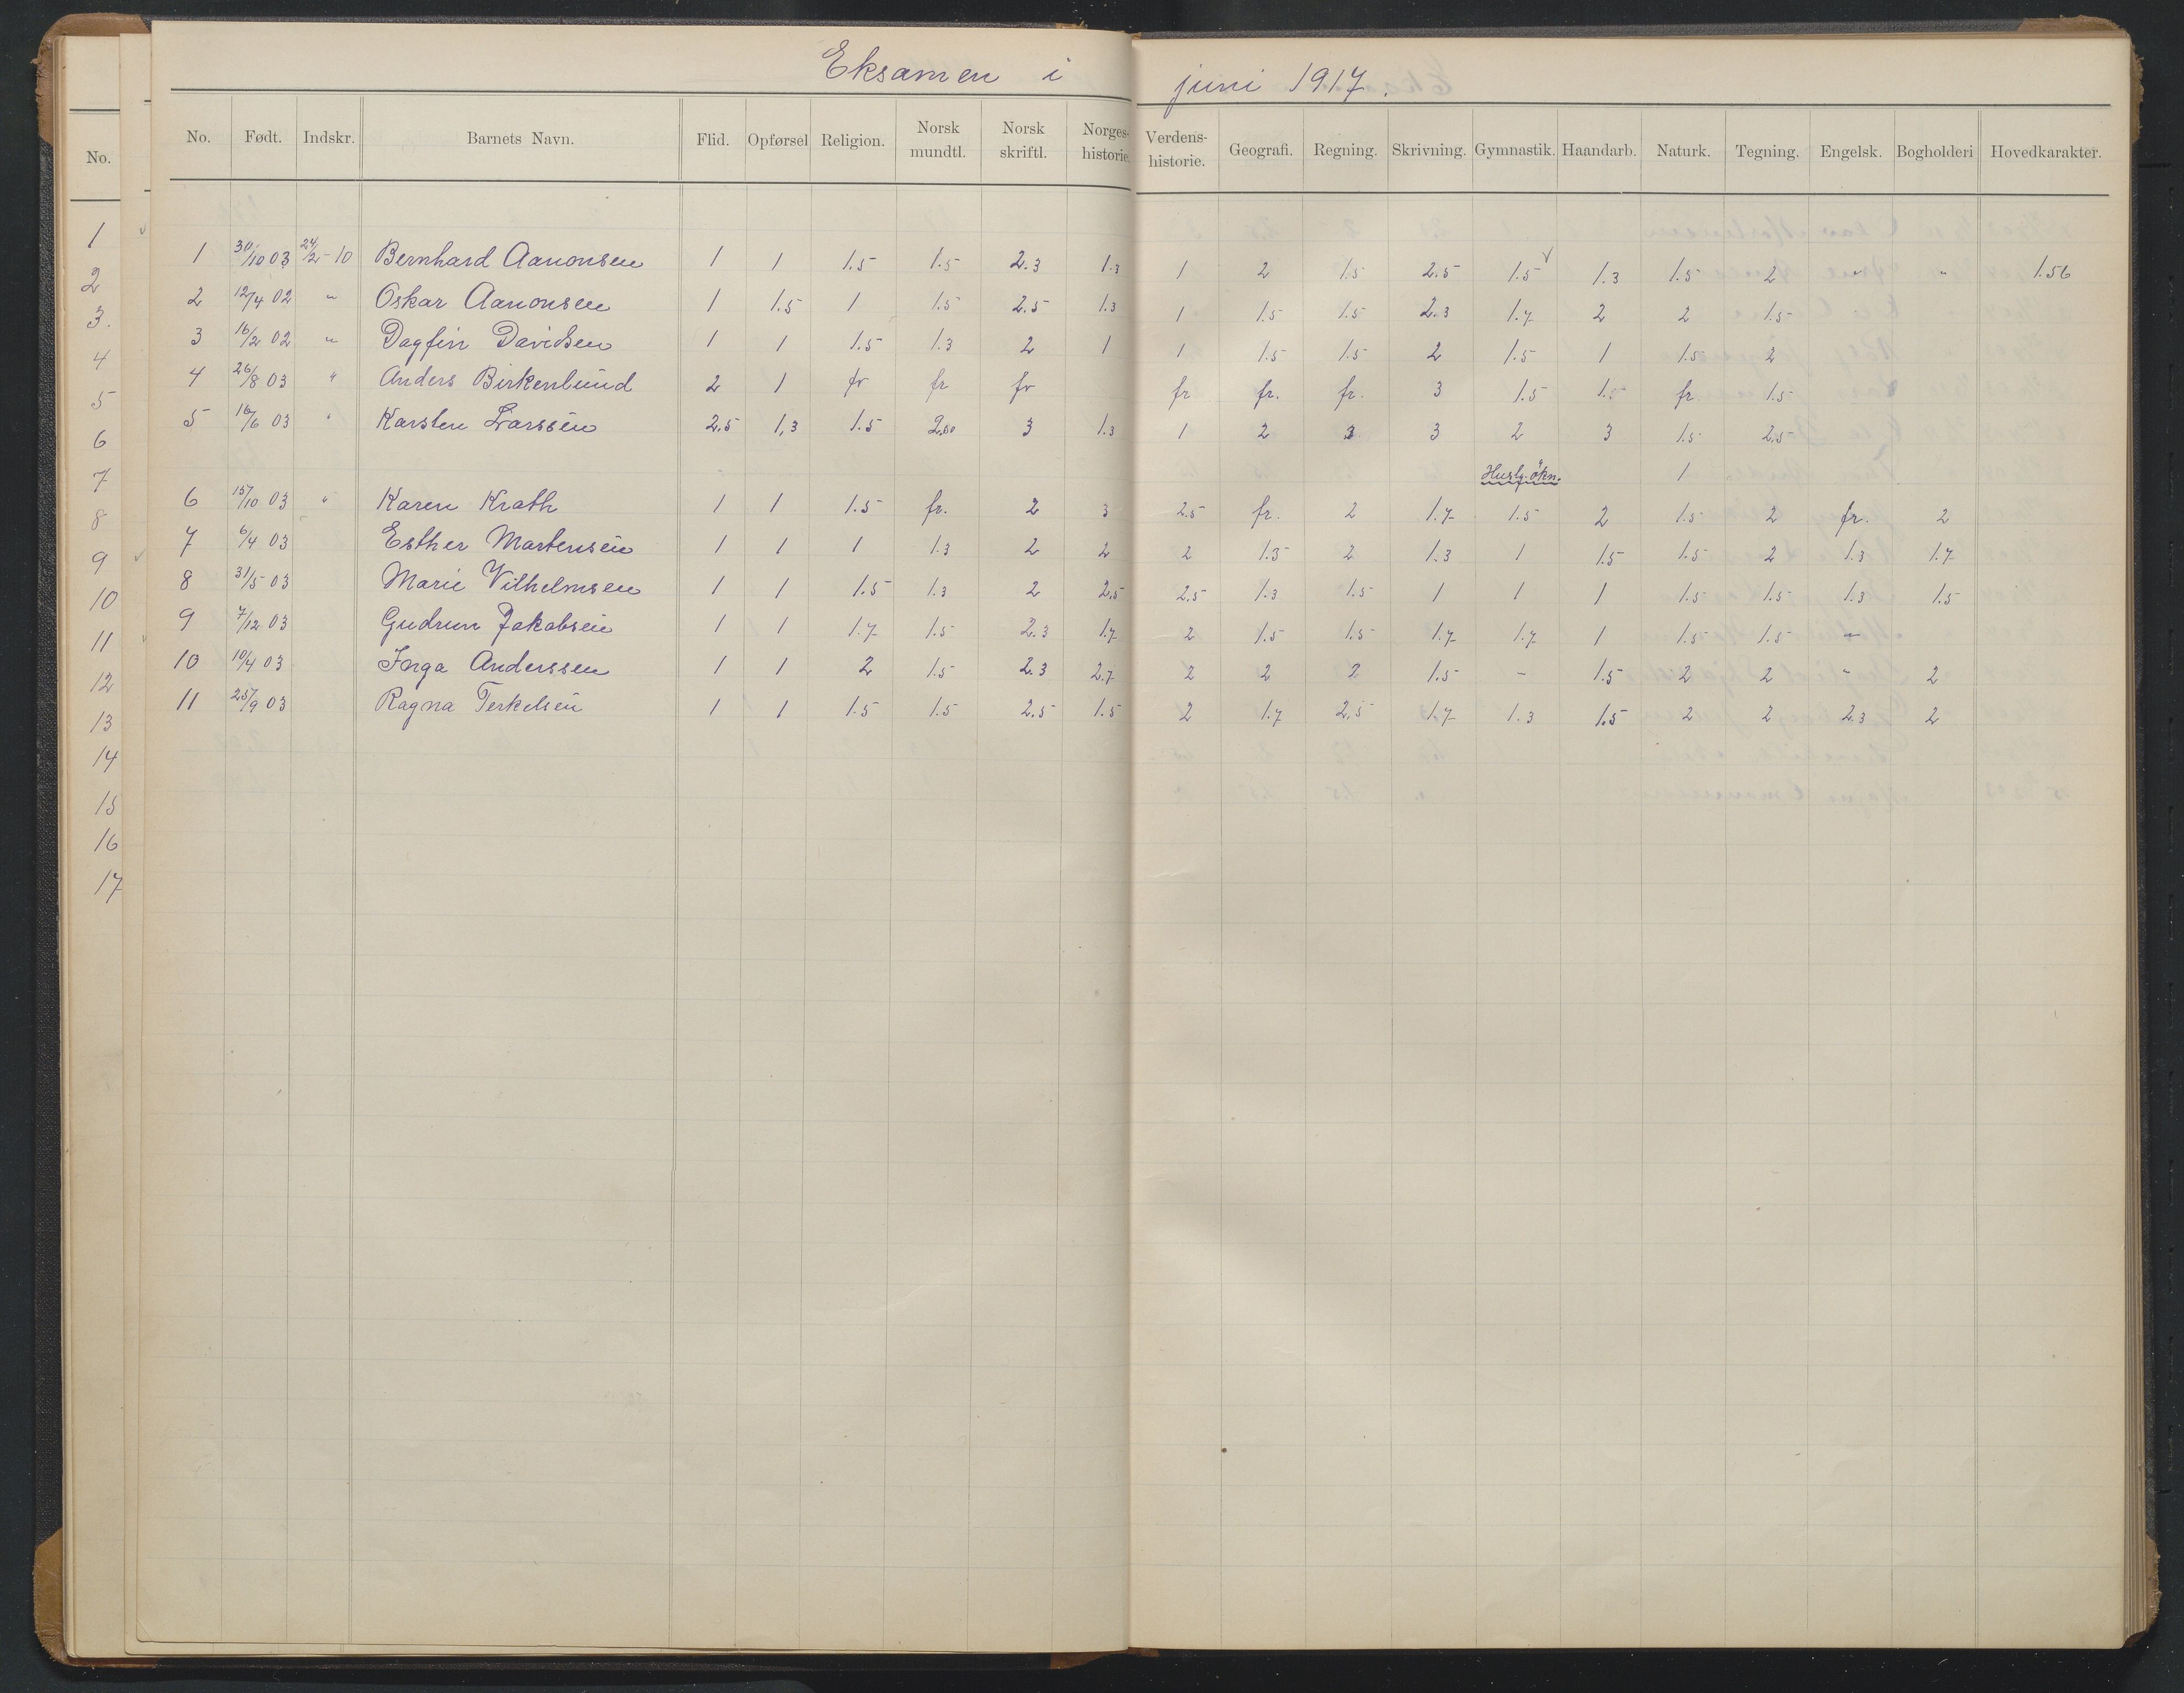 Eksamen i juni 1917.
No. Født. Indskr. Barnets Navn. Flid. Opførsel Religion. Norsk mundtl. Norsk skriftl. Norges-historie. Verdens-historie. Geografi. Regning. Skrivning. Gymnastik. Haandarb. Naturk. Tegning. Engelsk. Bogholderi Hovedkarakter.
1 30/10 03 24/2-10 Bernhard Aanonsen 1 1 1.5 1.5 2.3 1.3 1 2 1.5 2.5 1.5 1.3 1.5 2 " " 1.56
2 12/4 02 " Oskar Aanonsen 1 1.5 1 1.5 2.5 1.3 1 1.5 1.5 2.3 1.7 2 2 1.5
3 16/2 02 " Dagfin Davidsen 1 1 1.5 1.3 2 1 1 1.5 1.5 2 1.5 1 1.5 2
4 26/8 03 " Anders Birkenlund 2 1 fr fr fr fr fr. fr. 3 1.5 1.5 fr. 1.5
5 16/6 03 " Karsten Larssen 2.5 1,3 1.5 2,50 3 1.3 1 2 3 3 2 3 1.5 2,5
Huslg. økn. 1
6 15/10 03 " Karen Krath 1 1 1.5 fr. 2 3 2.5 fr. 2 1.7 1.5 2 1.5 2 fr. 2
7 6/4 03 Esther Martensen 1 1 1 1.3 2 2 2 1.5 2 1.3 1 1.5 1.5 2 1.3 1.7
8 31/5 03 Marie Vilhelmsen 1 1 1.5 1.3 2 2,5 2.5 1.3 1.5 1 1 1 1.5 1.5 1.3 1.5
9 7/12 03 Gudrun Jakobsen 1 1 1.7 1.5 2.3 1.7 2 1.5 1.5 1.7 1.7 1 1.5 1.5 -
10 10/4 03 Inga Anderssen 1 1 2 1.5 2.3 2.7 2 2 2 1.5 - 1.5 2 2 - 2
11 25/9 03 Ragna Terkelsen 1 1 1.5 1.5 2.5 1.5 2 1.7 2,5 1.7 1.3 1.5 2 2 2.3 2
No.
1
2
3.
4
5
6
7
8
9
10
11
12
13
14
15
16
17